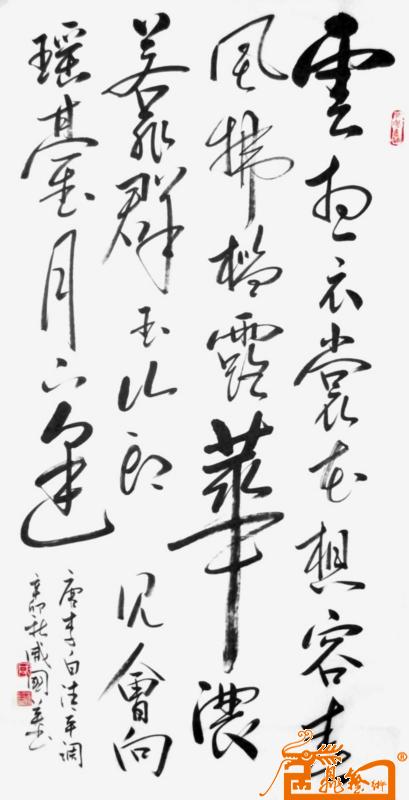 雲想衣裳花想容春
風拂槛露華濃
若非群玉山頭見會向
瑶臺月下逢
唐李白清平調
辛卯秋國书